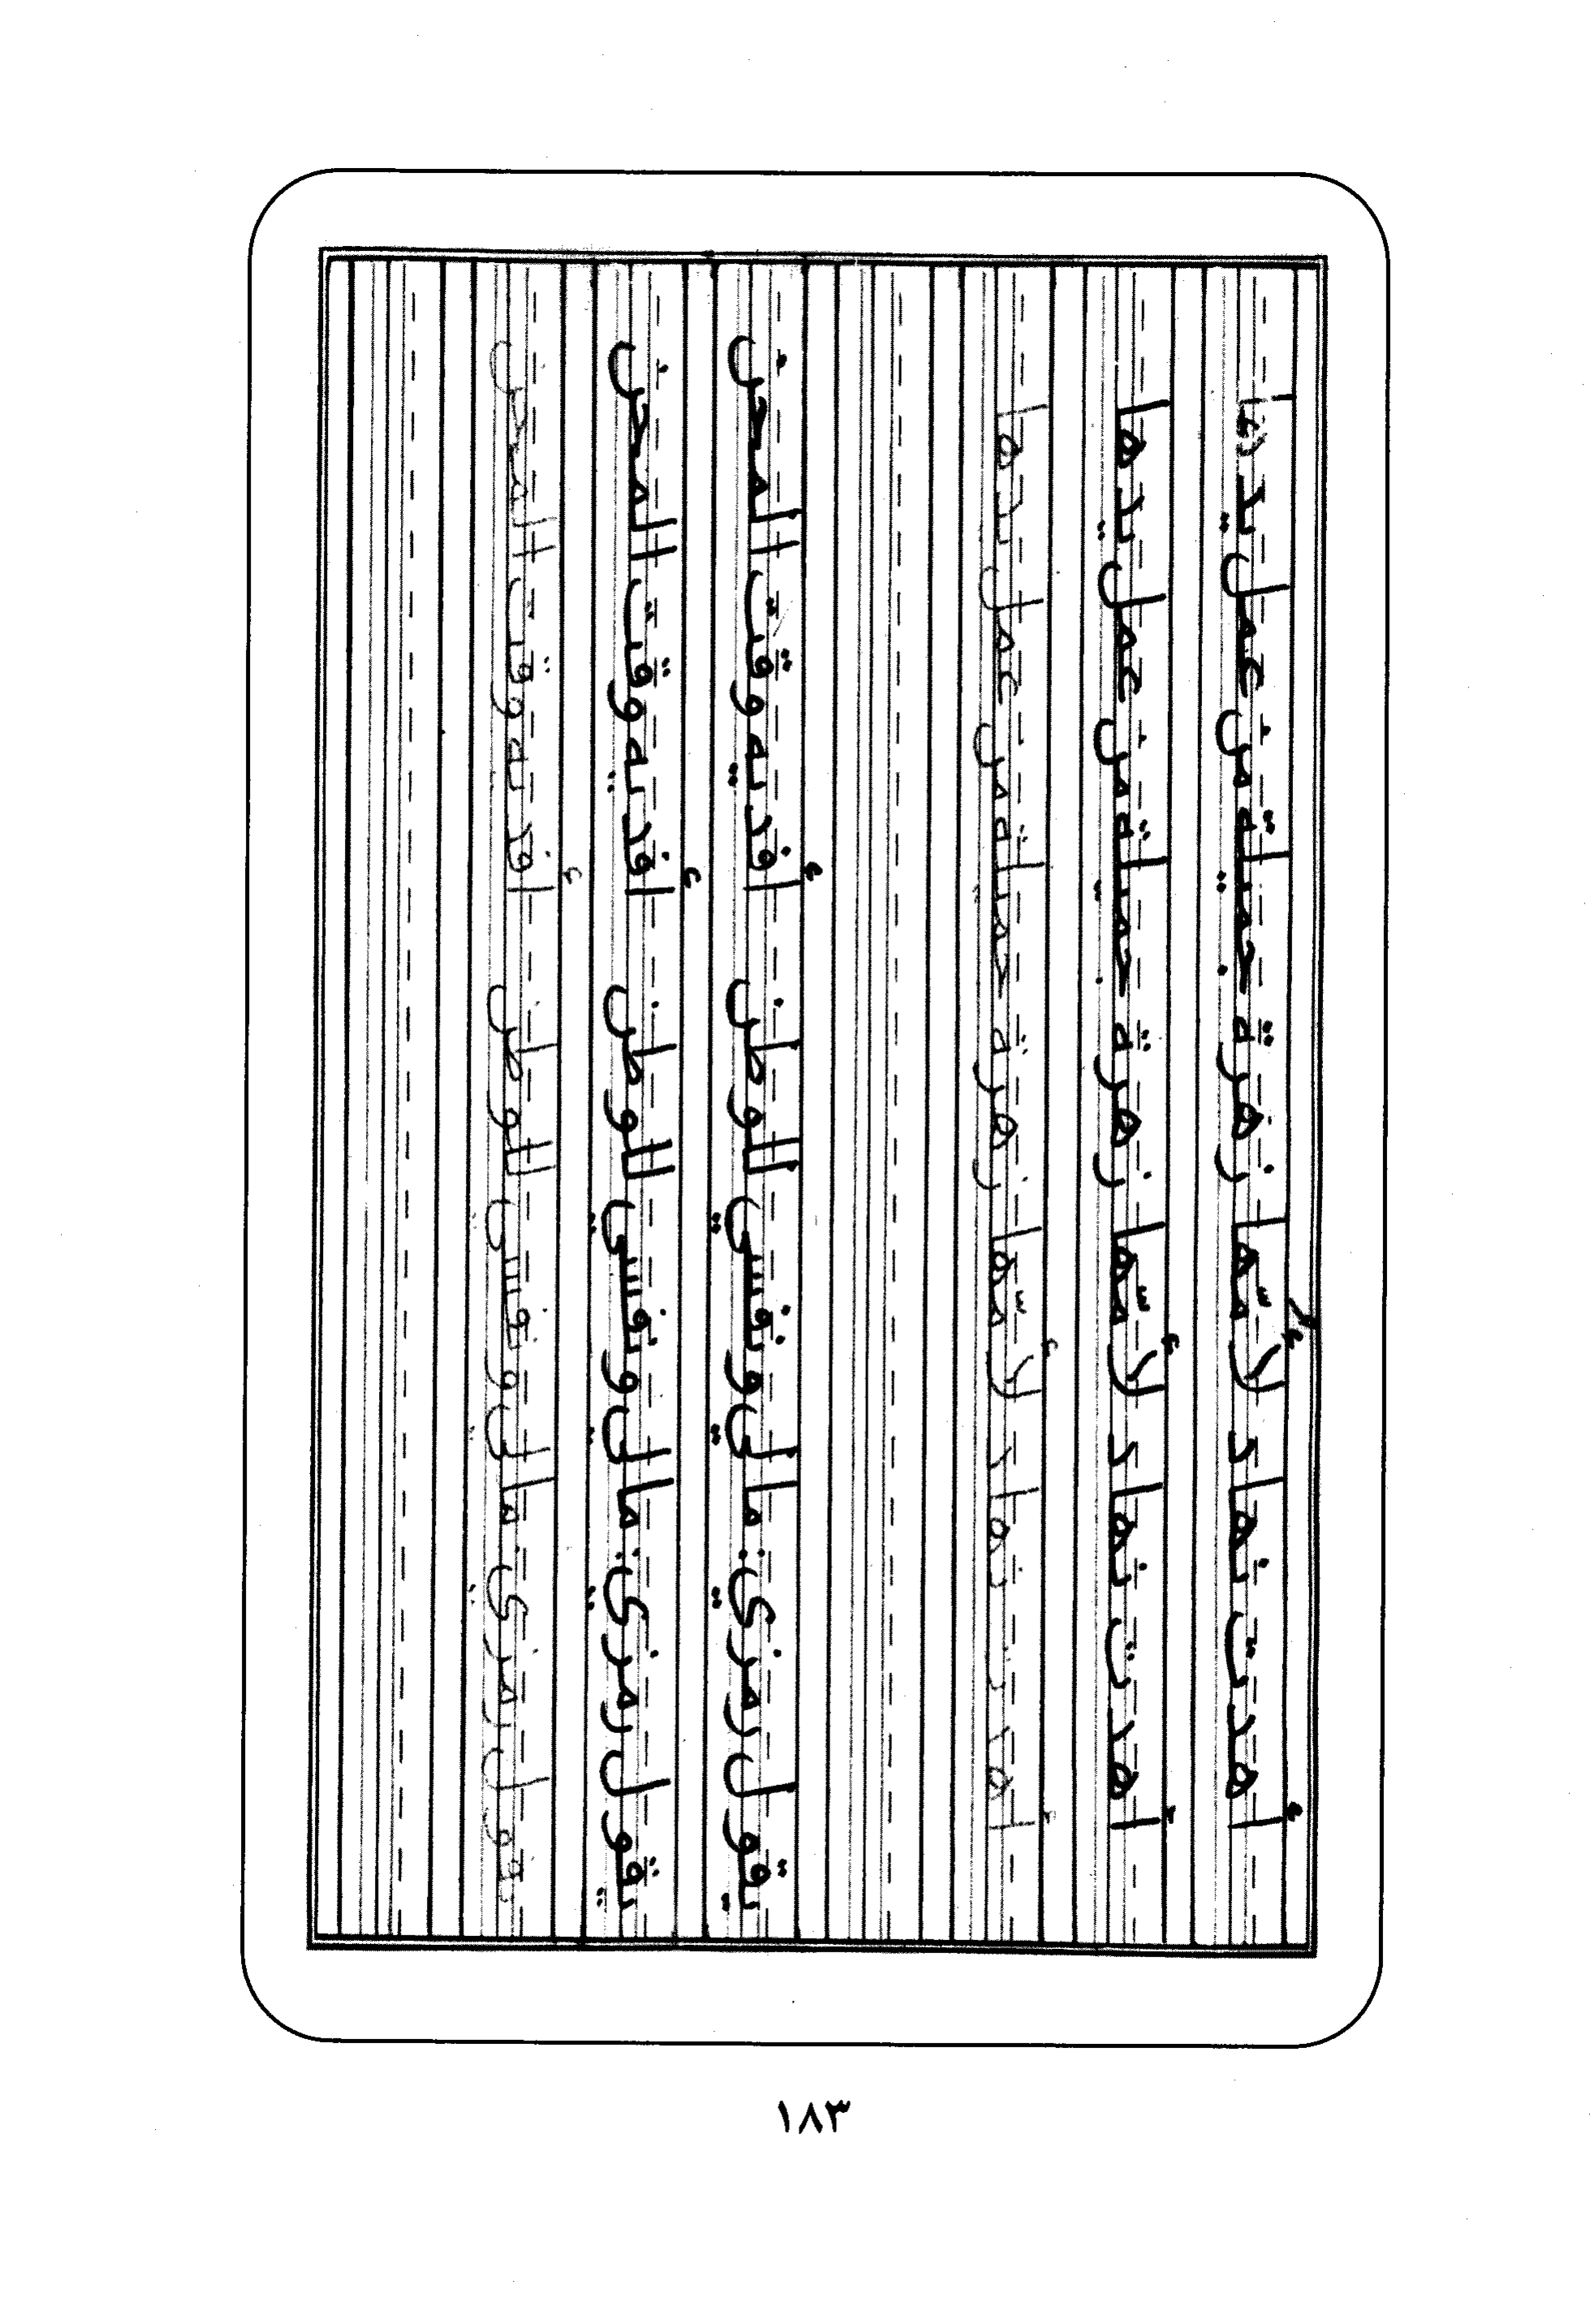 أهدت نهاد لأمّها زهرة جميلة من عمل يدها
أهدت نهاد لأمّها زهرة جميلة من عمل يدها
أهدت نهاد لأمّها زهرة جميلة من عمل يدها
يقول رمزي: مالي ونفسي للوطن أفديه وقت المحن
يقول رمزي: مالي ونفسي للوطن أفديه وقت المحن
يقول رمزي: مالي ونفسي للوطن أفديه وقت المحن
١٨٣